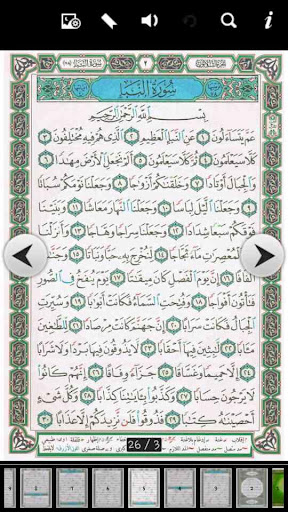 الجزء الثلاثون
٢
سورة النبإ (٧٨)
سُورَةُ النَّبَإِ
بِسْمِ اللَّهِ الرَّحْمَٰنِ الرَّحِيمِ
عَمَّ يَتَسَاءَلُونَ ١ عَنِ النَّبَإِ الْعَظِيمِ ٢ الَّذِي هُمْ فِيهِ مُخْتَلِفُونَ ٣
كَلَّا سَيَعْلَمُونَ ٤ ثُمَّ كَلَّا سَيَعْلَمُونَ ٥ أَلَمْ نَجْعَلِ الْأَرْضَ مِهَٰدًا ٦
وَالْجِبَالَ أَوْتَادًا ٧ وَخَلَقْنَٰكُمْ أَزْوَٰجًا ٨ وَجَعَلْنَا نَوْمَكُمْ سُبَاتًا
٩ وَجَعَلْنَا اللَّيْلَ لِبَاسًا ١٠ وَجَعَلْنَا النَّهَارَ مَعَاشًا ١١ وَبَنَيْنَا
فَوْقَكُمْ سَبْعًا شِدَادًا ١٢ وَجَعَلْنَا سِرَاجًا وَهَّاجًا ١٣ وَأَنزَلْنَا مِنَ
الْمُعْصِرَٰتِ مَاءً ثَجَّاجًا ١٤ لِنُخْرِجَ بِهِ حَبًّا وَنَبَاتًا ١٥ وَجَنَّٰتٍ
أَلْفَافًا ١٦ إِنَّ يَوْمَ الْفَصْلِ كَانَ مِيقَٰتًا ١٧ يَوْمَ يُنفَخُ فِي الصُّورِ
فَتَأْتُونَ أَفْوَاجًا ١٨ وَفُتِحَتِ السَّمَاءُ فَكَانَتْ أَبْوَٰبًا ١٩ وَسُيِّرَتِ
الْجِبَالُ فَكَانَتْ سَرَابًا ٢٠ إِنَّ جَهَنَّمَ كَانَتْ مِرْصَادًا ٢١ لِلطَّٰغِينَ
مَـَٔابًا ٢٢ لَّٰبِثِينَ فِيهَا أَحْقَابًا ٢٣ لَا يَذُوقُونَ فِيهَا بَرْدًا وَلَا شَرَابًا
٢٤ إِلَّا حَمِيمًا وَغَسَّاقًا ٢٥ جَزَاءً وِفَاقًا ٢٦ إِنَّهُمْ كَانُوا
لَا يَرْجُونَ حِسَابًا ٢٧ وَكَذَّبُوا بِـَٔايَٰتِنَا كِذَّابًا ٢٨ وَكُلَّ شَيْءٍ
أَحْصَيْنَٰهُ كِتَٰبًا ٢٩ فَذُوقُوا فَلَن نَّزِيدَكُمْ إِلَّا عَذَابًا ٣٠
26 / 3